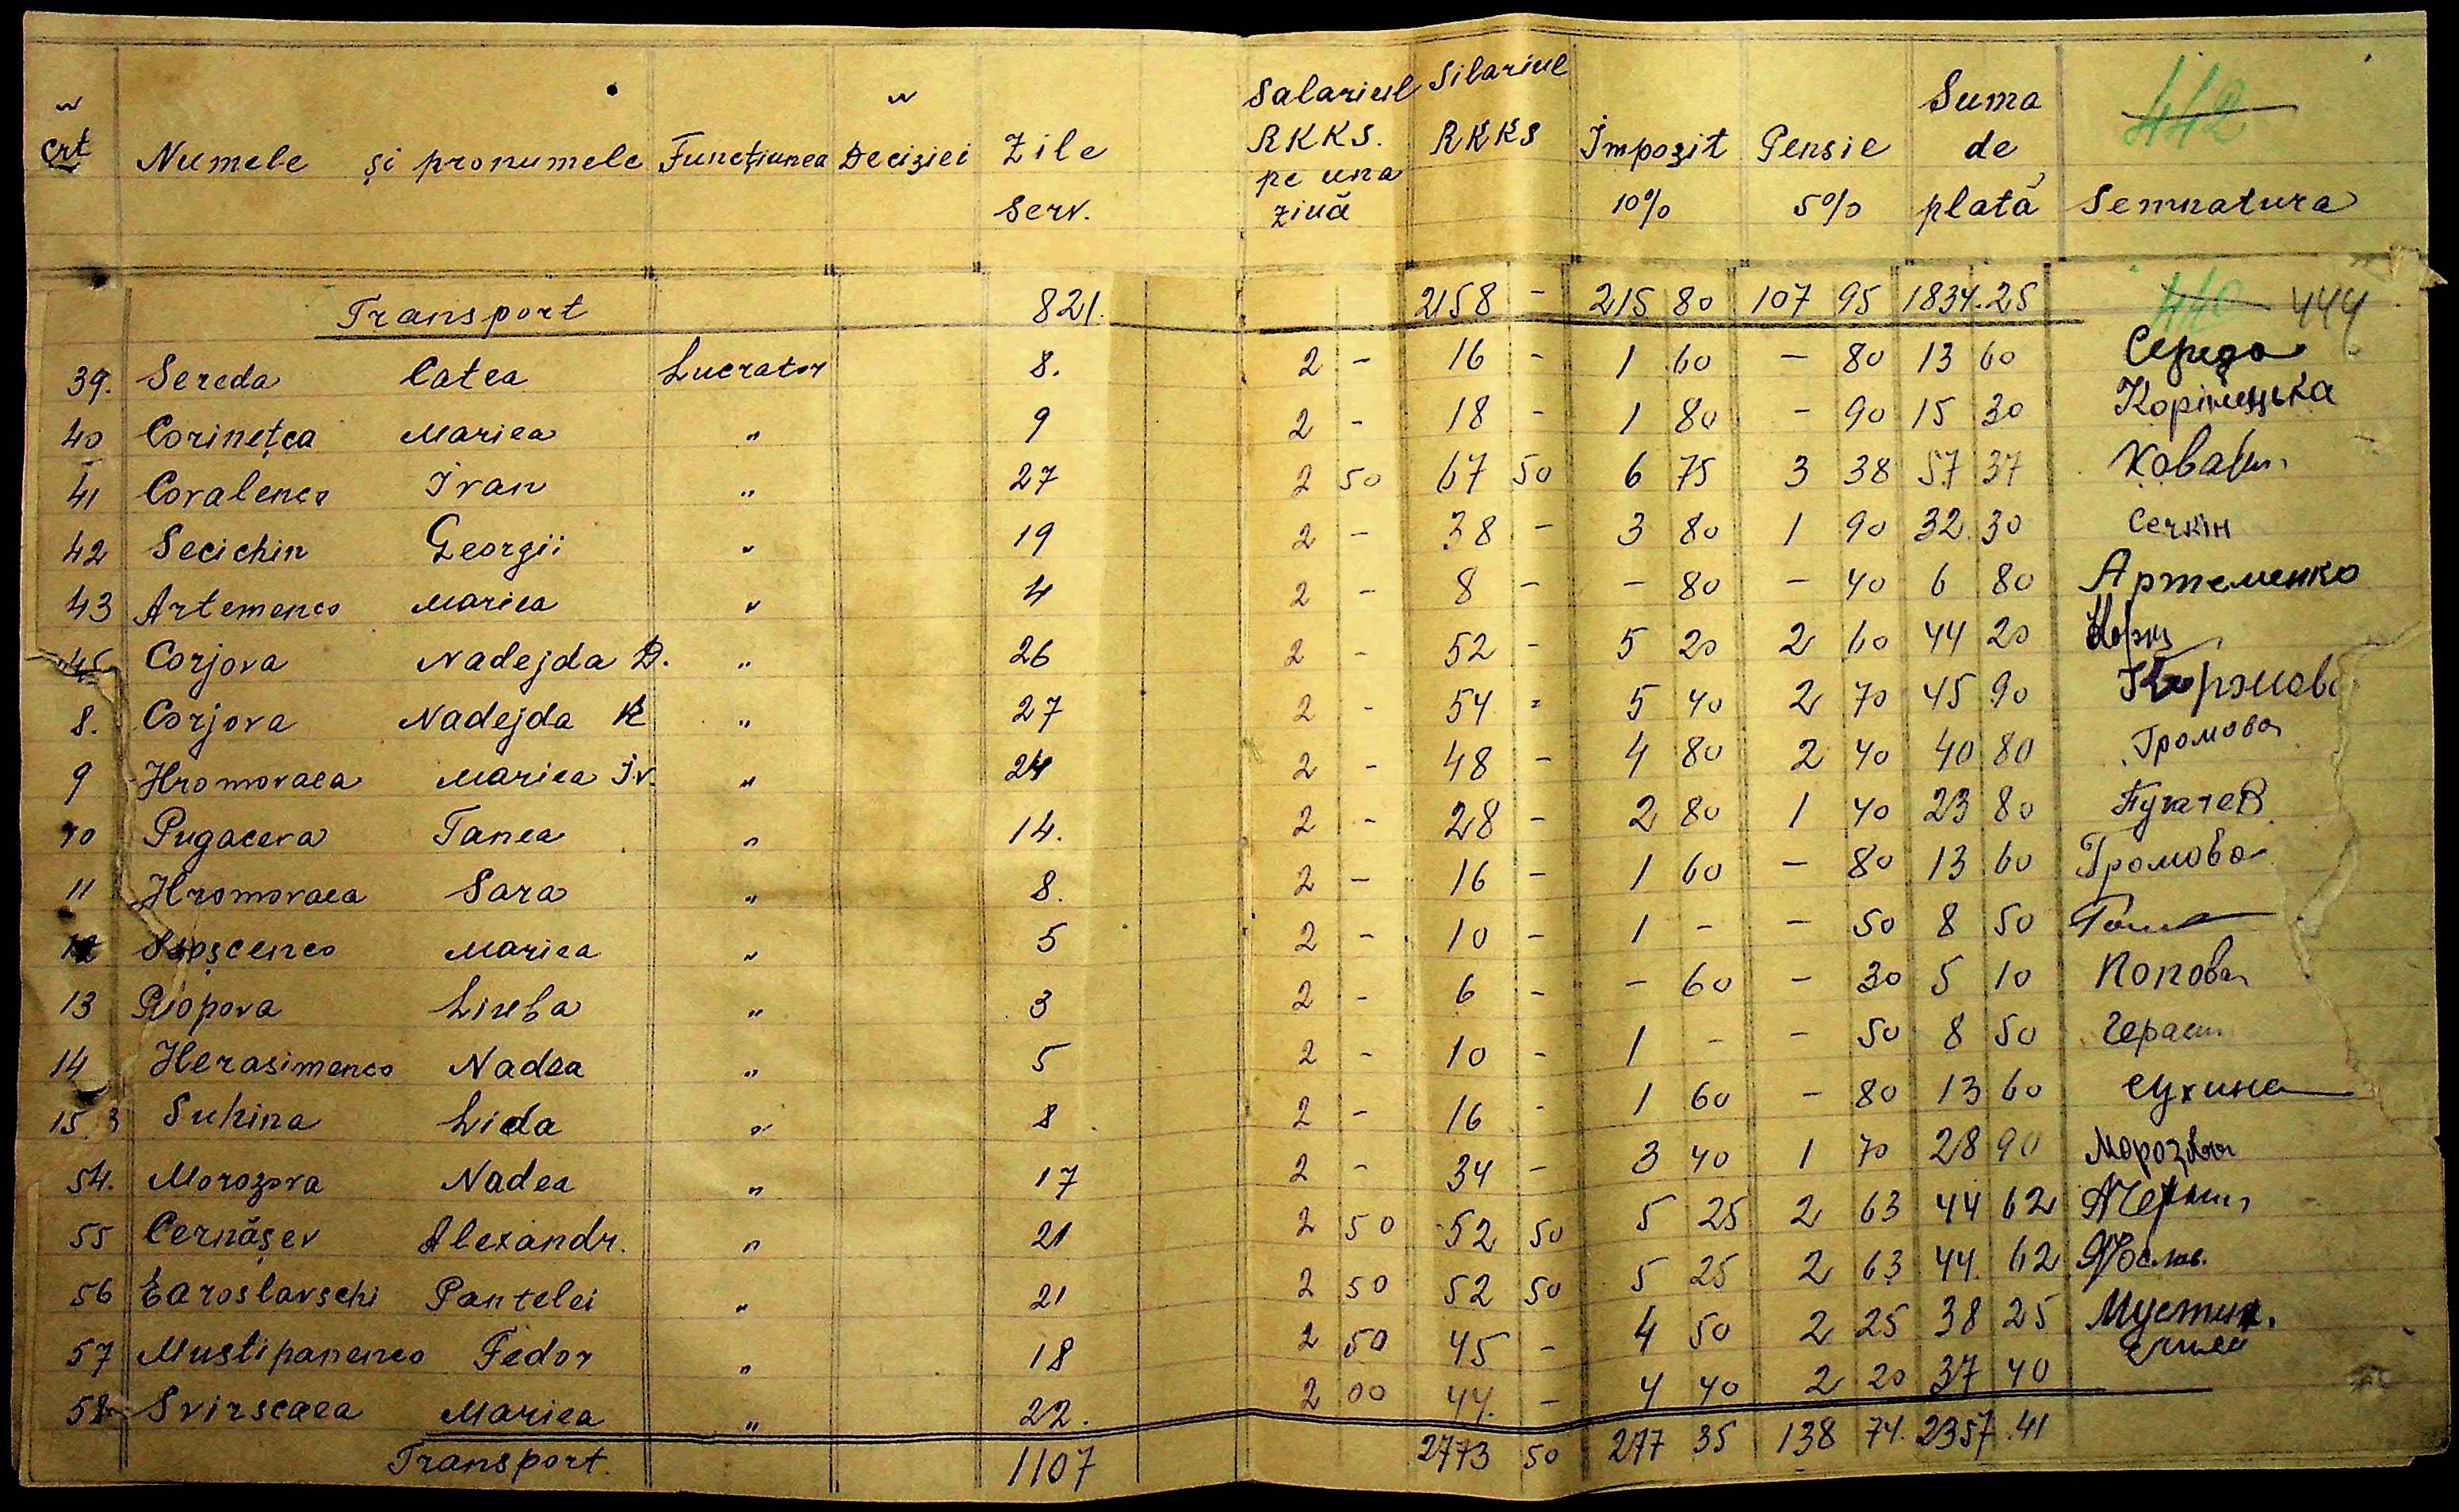 crt Numele și pronumele Funcțiunea Deciziei Zile Serv. Salariul RKKS. pe una ziuă Silariul RKKS Impozit 10% Pensie 5% Suma de plată Semnatura
442
Transport 821. 2158 - 215 80 107 95 1834.25 440 444
39. Sereda Catea Lucrator 8. 2 - 16 - 1 60 - 80 13 60 Середа
40 Corinețca Mariea " 9 2 - 18 - 1 80 - 90 15 30 Корінецька
41 Covalenco Ivan " 27 2 50 67 50 6 75 3 38 57 37
42 Secichin Georgii " 19 2 - 38 - 3 80 1 90 32.30 Сечкін
43 Artemenco Mariea " 4 2 - 8 - - 80 - 40 6 80 Артеменко
45 Corjova Nadejda D. " 26 2 - 52 - 5 20 2 60 44 20
8. Corjova Nadejda K " 27 2 - 54 = 5 40 2 70 45 90 Коржова
9 Hromovaea Mariea Iv. " 24 2 - 48 - 4 80 2 40 40 80 Громова
10 Pugaceva Tanea " 14. 2 - 28 - 2 80 1 40 23 80 Пугачев
11 Hromovaea Sara " 8. 2 - 16 - 1 60 - 80 13 60 Громова
12 Mariea " 5 2 - 10 - 1 - - 50 8 50
13 Popova Liuba " 3 2 - 6 - - 60 - 30 5 10 Попова
14 Herasimenco Nadea " 5 2 - 10 - 1 - - 50 8 50 Герасим
15 3 Suhina Lida " 8 2 - 16 - 1 60 - 80 13 60 Сухина
54. Morozova Nadea " 17 2 - 34 - 3 40 1 70 28 90 Морозова
55 Cernășev Alexandr. " 21 2 50 52 50 5 25 2 63 44 62
56 Earoslavschi Pantelei " 21 2 50 52 50 5 25 2 63 44. 62
57 Mustipanenco Fedor " 18 2 50 45 - 4 50 2 25 38 25
58 Svirscaea Mariea " 22. 2 00 44. - 4 40 2 20 37 40
Transport. 1107 2773 50 277 35 138 74. 2357.41